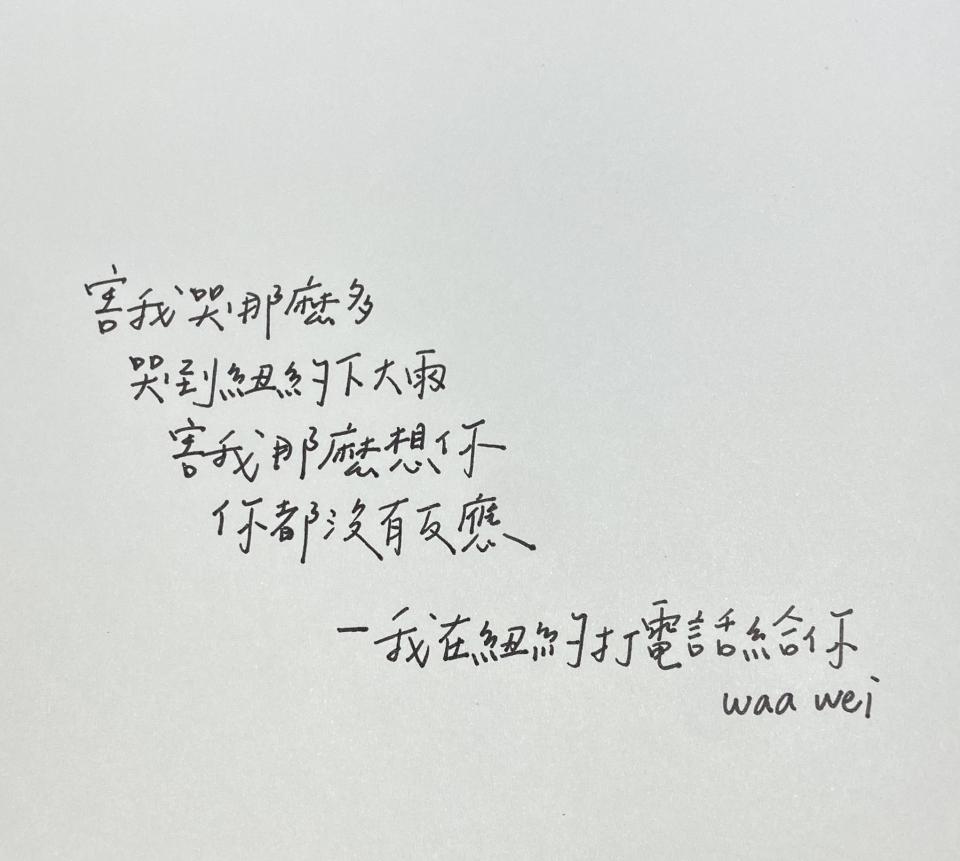 害我哭那麼多
哭到紐約下大雨
害我那麼想你
你都沒有反應
—我在紐約打電話給你
waa wei